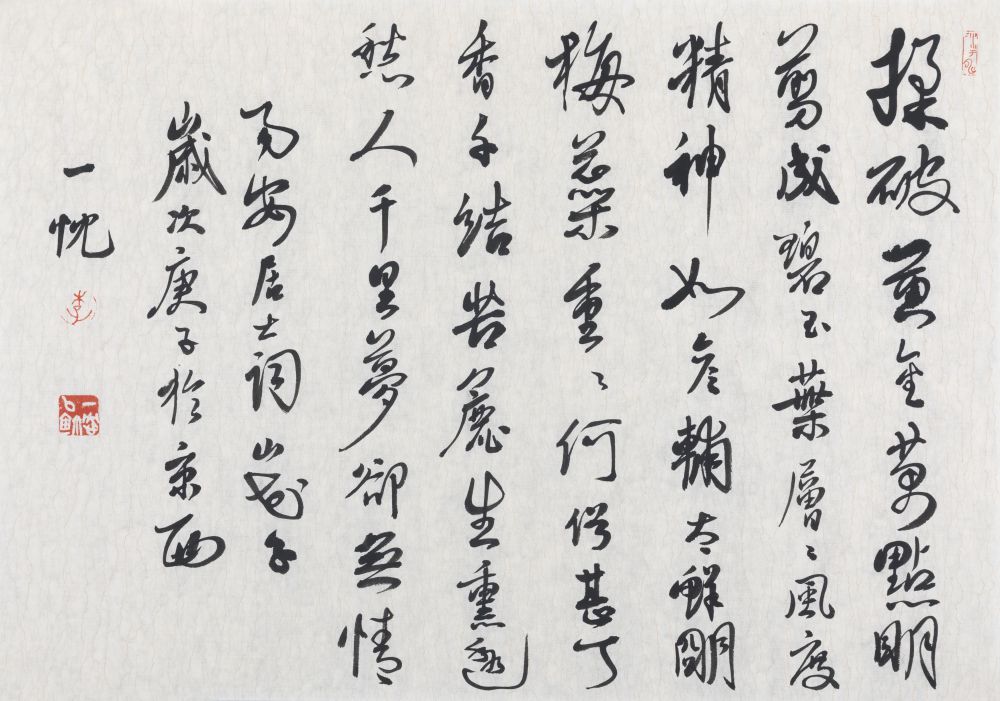 揉破黃金萬點明
剪成碧玉葉層〻風度
精神如彥輔太鮮明
梅蘂重〻何俗甚丁
香千結苦麤生熏透
愁人千里夢卻無情
易安居士詞山花子
歲次庚子於京西
一忱
李